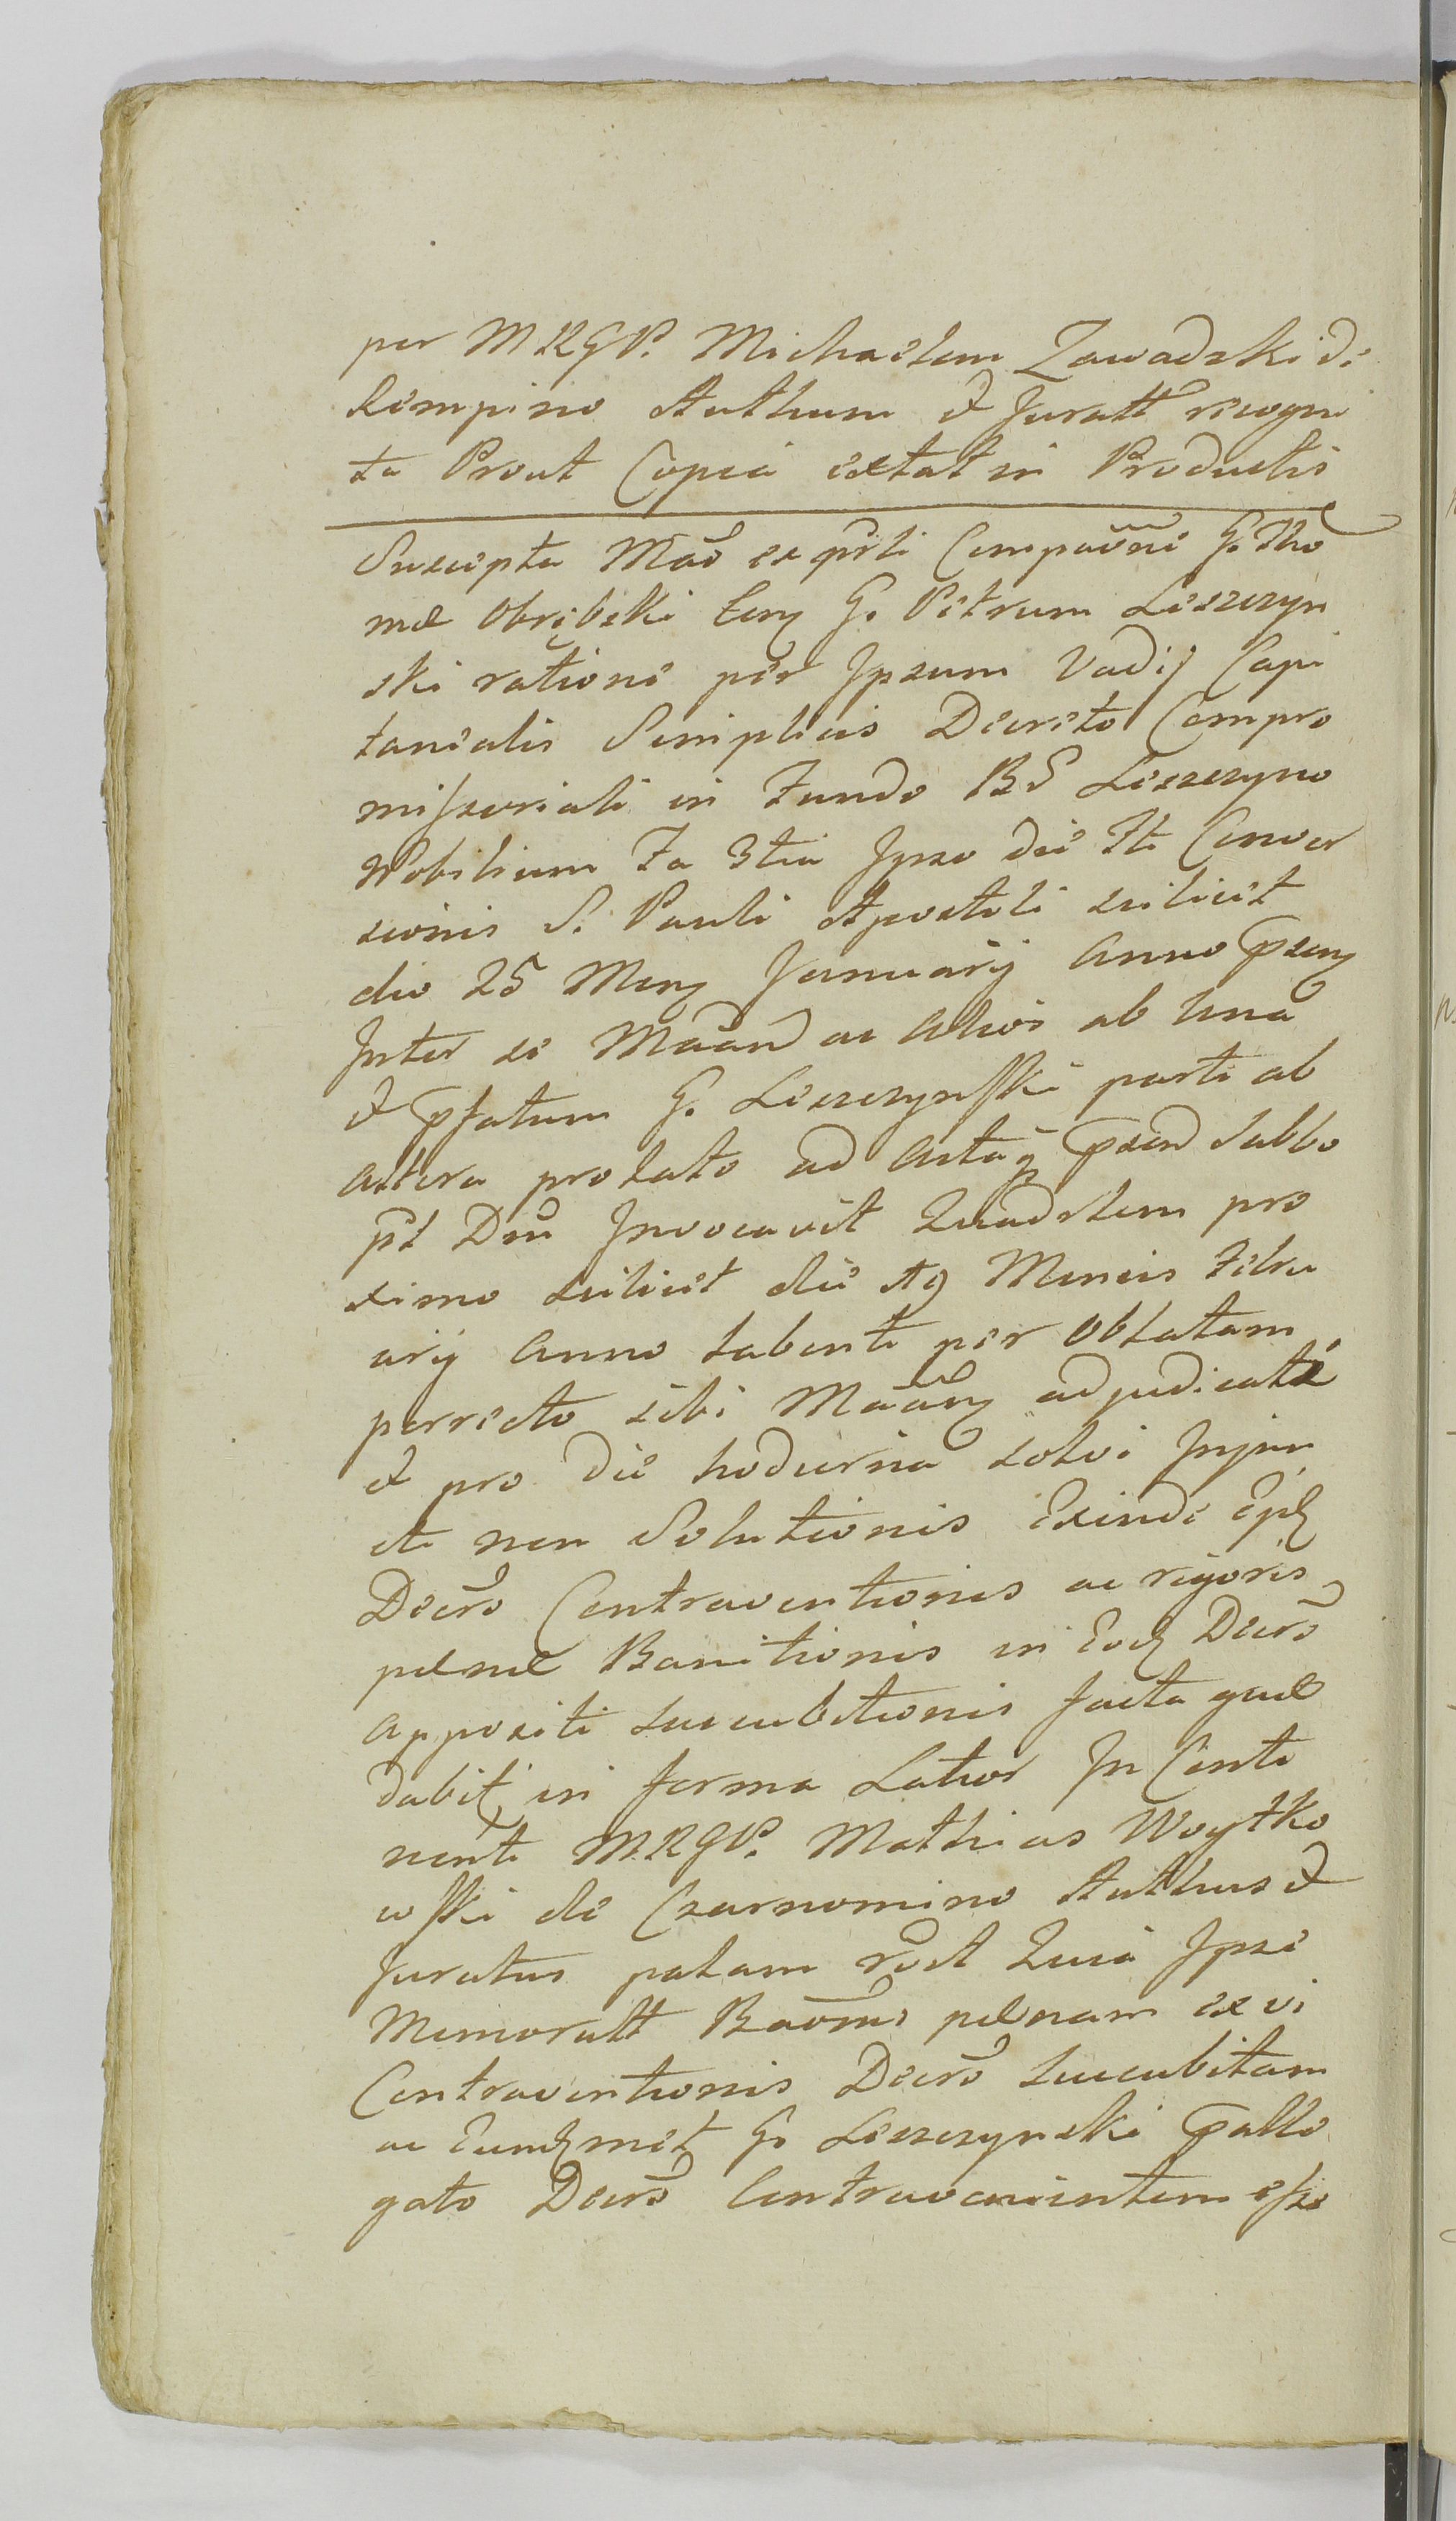 per MRGP. Michaelem Zawadzki de
Kempino Authum et Juratt recogni
ta Prout Copia extat in Productis
Suscepta Mão ex prli Compaõne G. Tho
mæ Obrębski Cen G. Petrum Leszczyn
ski ratione per Ipsum Vadij Capi
tanealis Simplicis Decreto Compro
missoriali in Fundo BS Leszczyno
Nobilium Fa 3tia Ipso die Fti Conver
sionis S. Pauli Apostoli scilicet
die 25 Mens January Anno Psen
Inter se Maãnd ac Alios ab Una
et Pfatum G. Leszczynski parte ab
altera prolato ad Actaq Psend Sabbo
pt Dnũ Invocavit Quadrlem pro
ximo scilicet die 19 Mensis Febru
arij Anno Labente per Oblatam
perrecto sibi Maãn adjudicatæ
et pro die hodierna solvi Injun
ctæ non Solutionis Exinde Epl
Decro Contraventionis ac rigoris
pœnæ Banitionis in Eod Decro
appositi succubitionis facta quæ
dabit in forma Latior In Conti
nenti MRGP. Mathias Woytko
wski de Czarnomino Authus et
Juratus palam rõst Quia Ipse
Memoratt Baõnis pœnam ex vi
Contraventionis Decro succubitam
ac Eundmet G. Leszczynski Palle
gato Decro Contravenientem esse